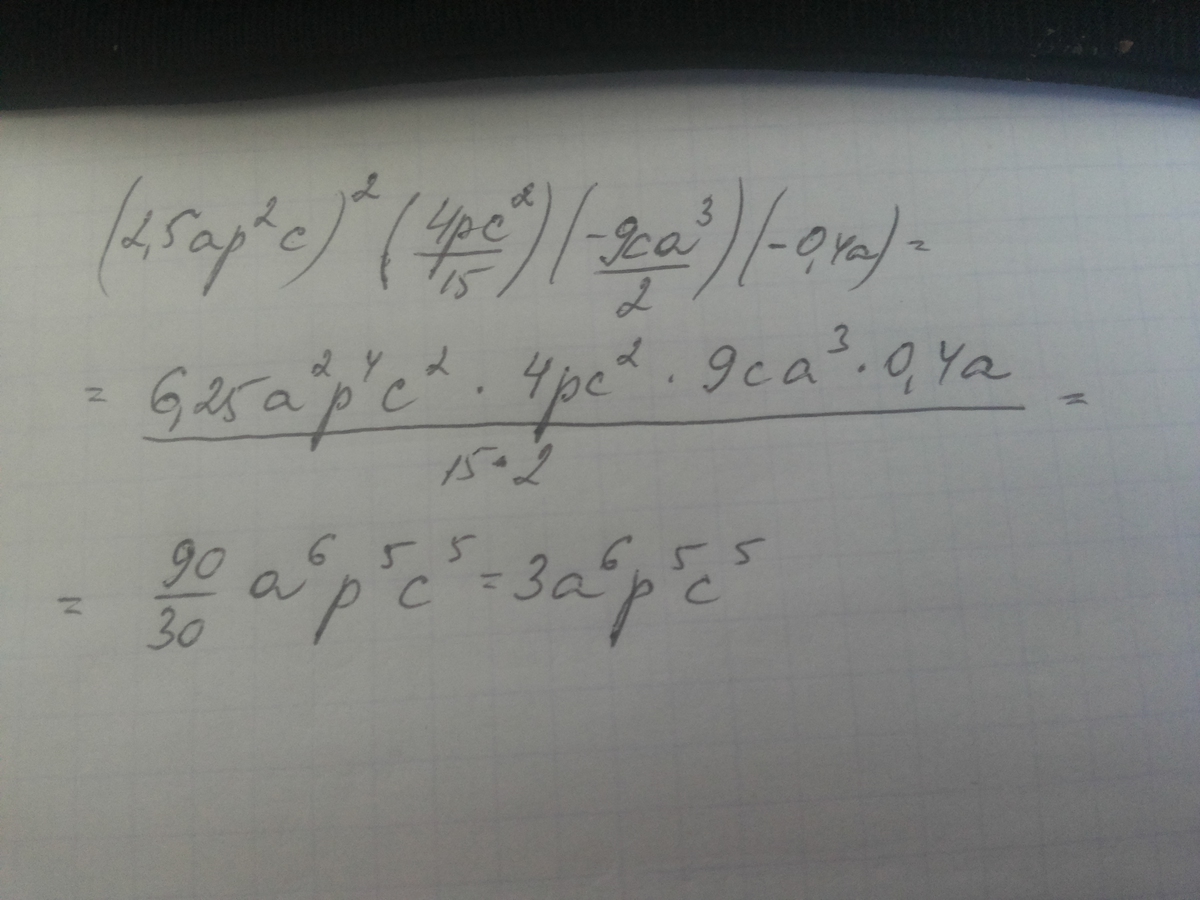 (2,5ap²c)² (4pc²/15) (-9ca³/2) (-0,4a) =
= 6,25a²p⁴c² · 4pc² · 9ca³ · 0,4a / 15·2 =
= 90/30 a⁶p⁵c⁵ = 3a⁶p⁵c⁵